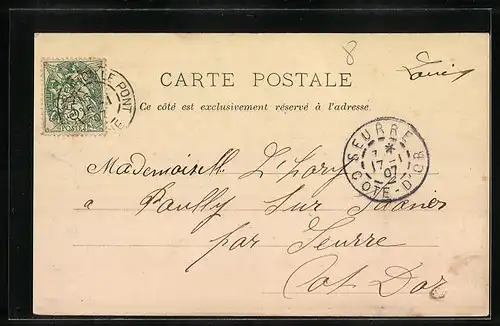 8
CARTE POSTALE
Ce côté est exclusivement réservé à l'adresse.
LE PONT
5
POSTES
SEURRE
*
17-1
07
COTE-D'OR
Mademoisell
à Pouilly sur Saône
par Seurre
Cot Dor